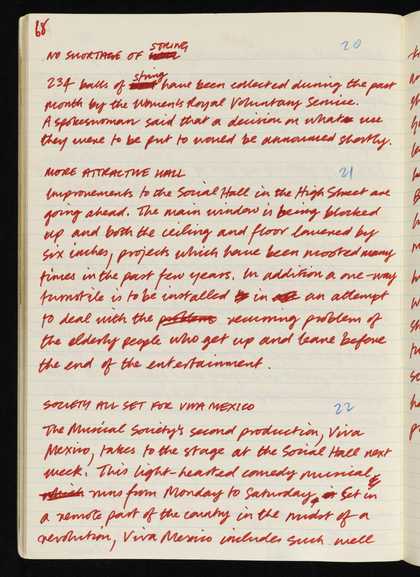 68
NO SHORTAGE OF STRING 20
234 balls of string have been collected during the past
month by the Women's Royal Voluntary Service.
A spokeswoman said that a decision on what use
they were to be put to would be announced shortly.
MORE ATTRACTIVE HALL 21
Improvements to the Social Hall in the High Street are
going ahead. The main window is being blocked
up and both the ceiling and floor lowered by
six inches, projects which have been mooted many
times in the past few years. In addition a one-way
turnstile is to be installed in an attempt
to deal with the problem recurring problem of
the elderly people who get up and leave before
the end of the entertainment.
SOCIETY ALL SET FOR VIVA MEXICO 22
The Musical Society's second production, Viva
Mexico, takes to the stage at the Social Hall next
week. This light-hearted comedy musical
which runs from Monday to Saturday, Set in
a remote part of the country in the midst of a
revolution, Viva Mexico includes such well